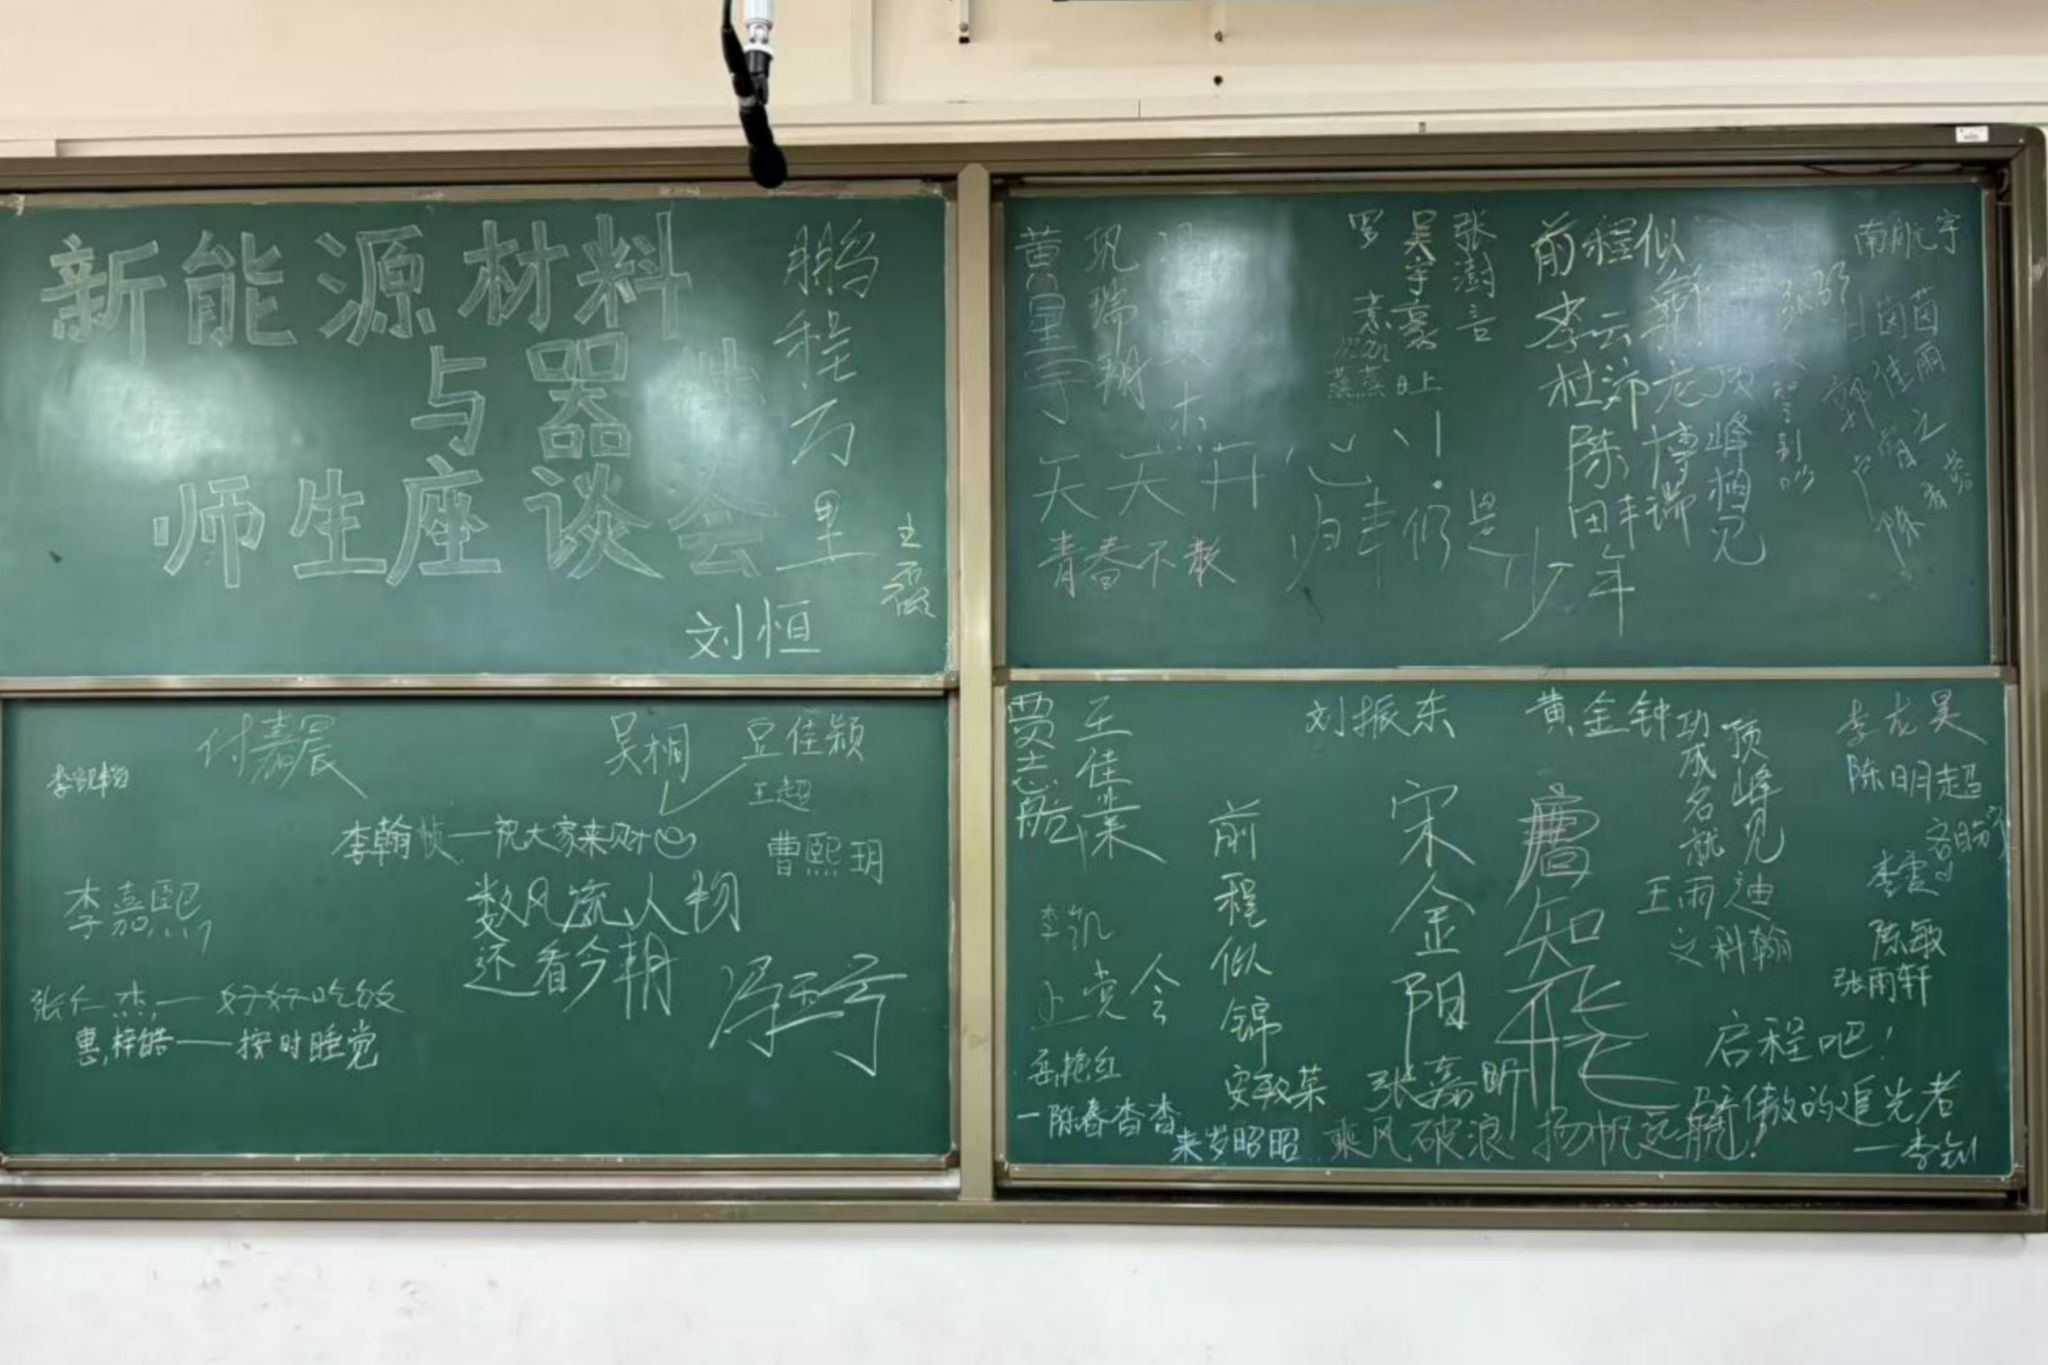 新能源材料
与器件
师生座谈会
鹏程万里
刘恒
付嘉晨
吴桐
豆佳颖
王超
李翰桢——祝大家来财
曹熙玥
李嘉熙
数风流人物
还看今朝
张仁杰——好好吃饭
惠梓皓——按时睡觉
黄星宇
巩瑞翔
罗
吴宇豪
张澍言
蒸蒸日上
天天开心!
青春不散
归来仍是少年
前程似锦
李云龙
杜沛
陈博
田丰瑞
顶峰相见
南航宇
郭佳雨
贾志航
王佳业
刘振东
黄金钟
功成名就
顶峰见
李龙昊
陈明超
前程似锦
宋金阳
唐知飞
王雨迪
文科翰
李雯
陈敏
张雨轩
李凯
岳艳红
安致荣
张嘉昕
启程吧!
骄傲的追光者
——李钊
一陈春杳杳
来岁昭昭
乘风破浪 扬帆远航!